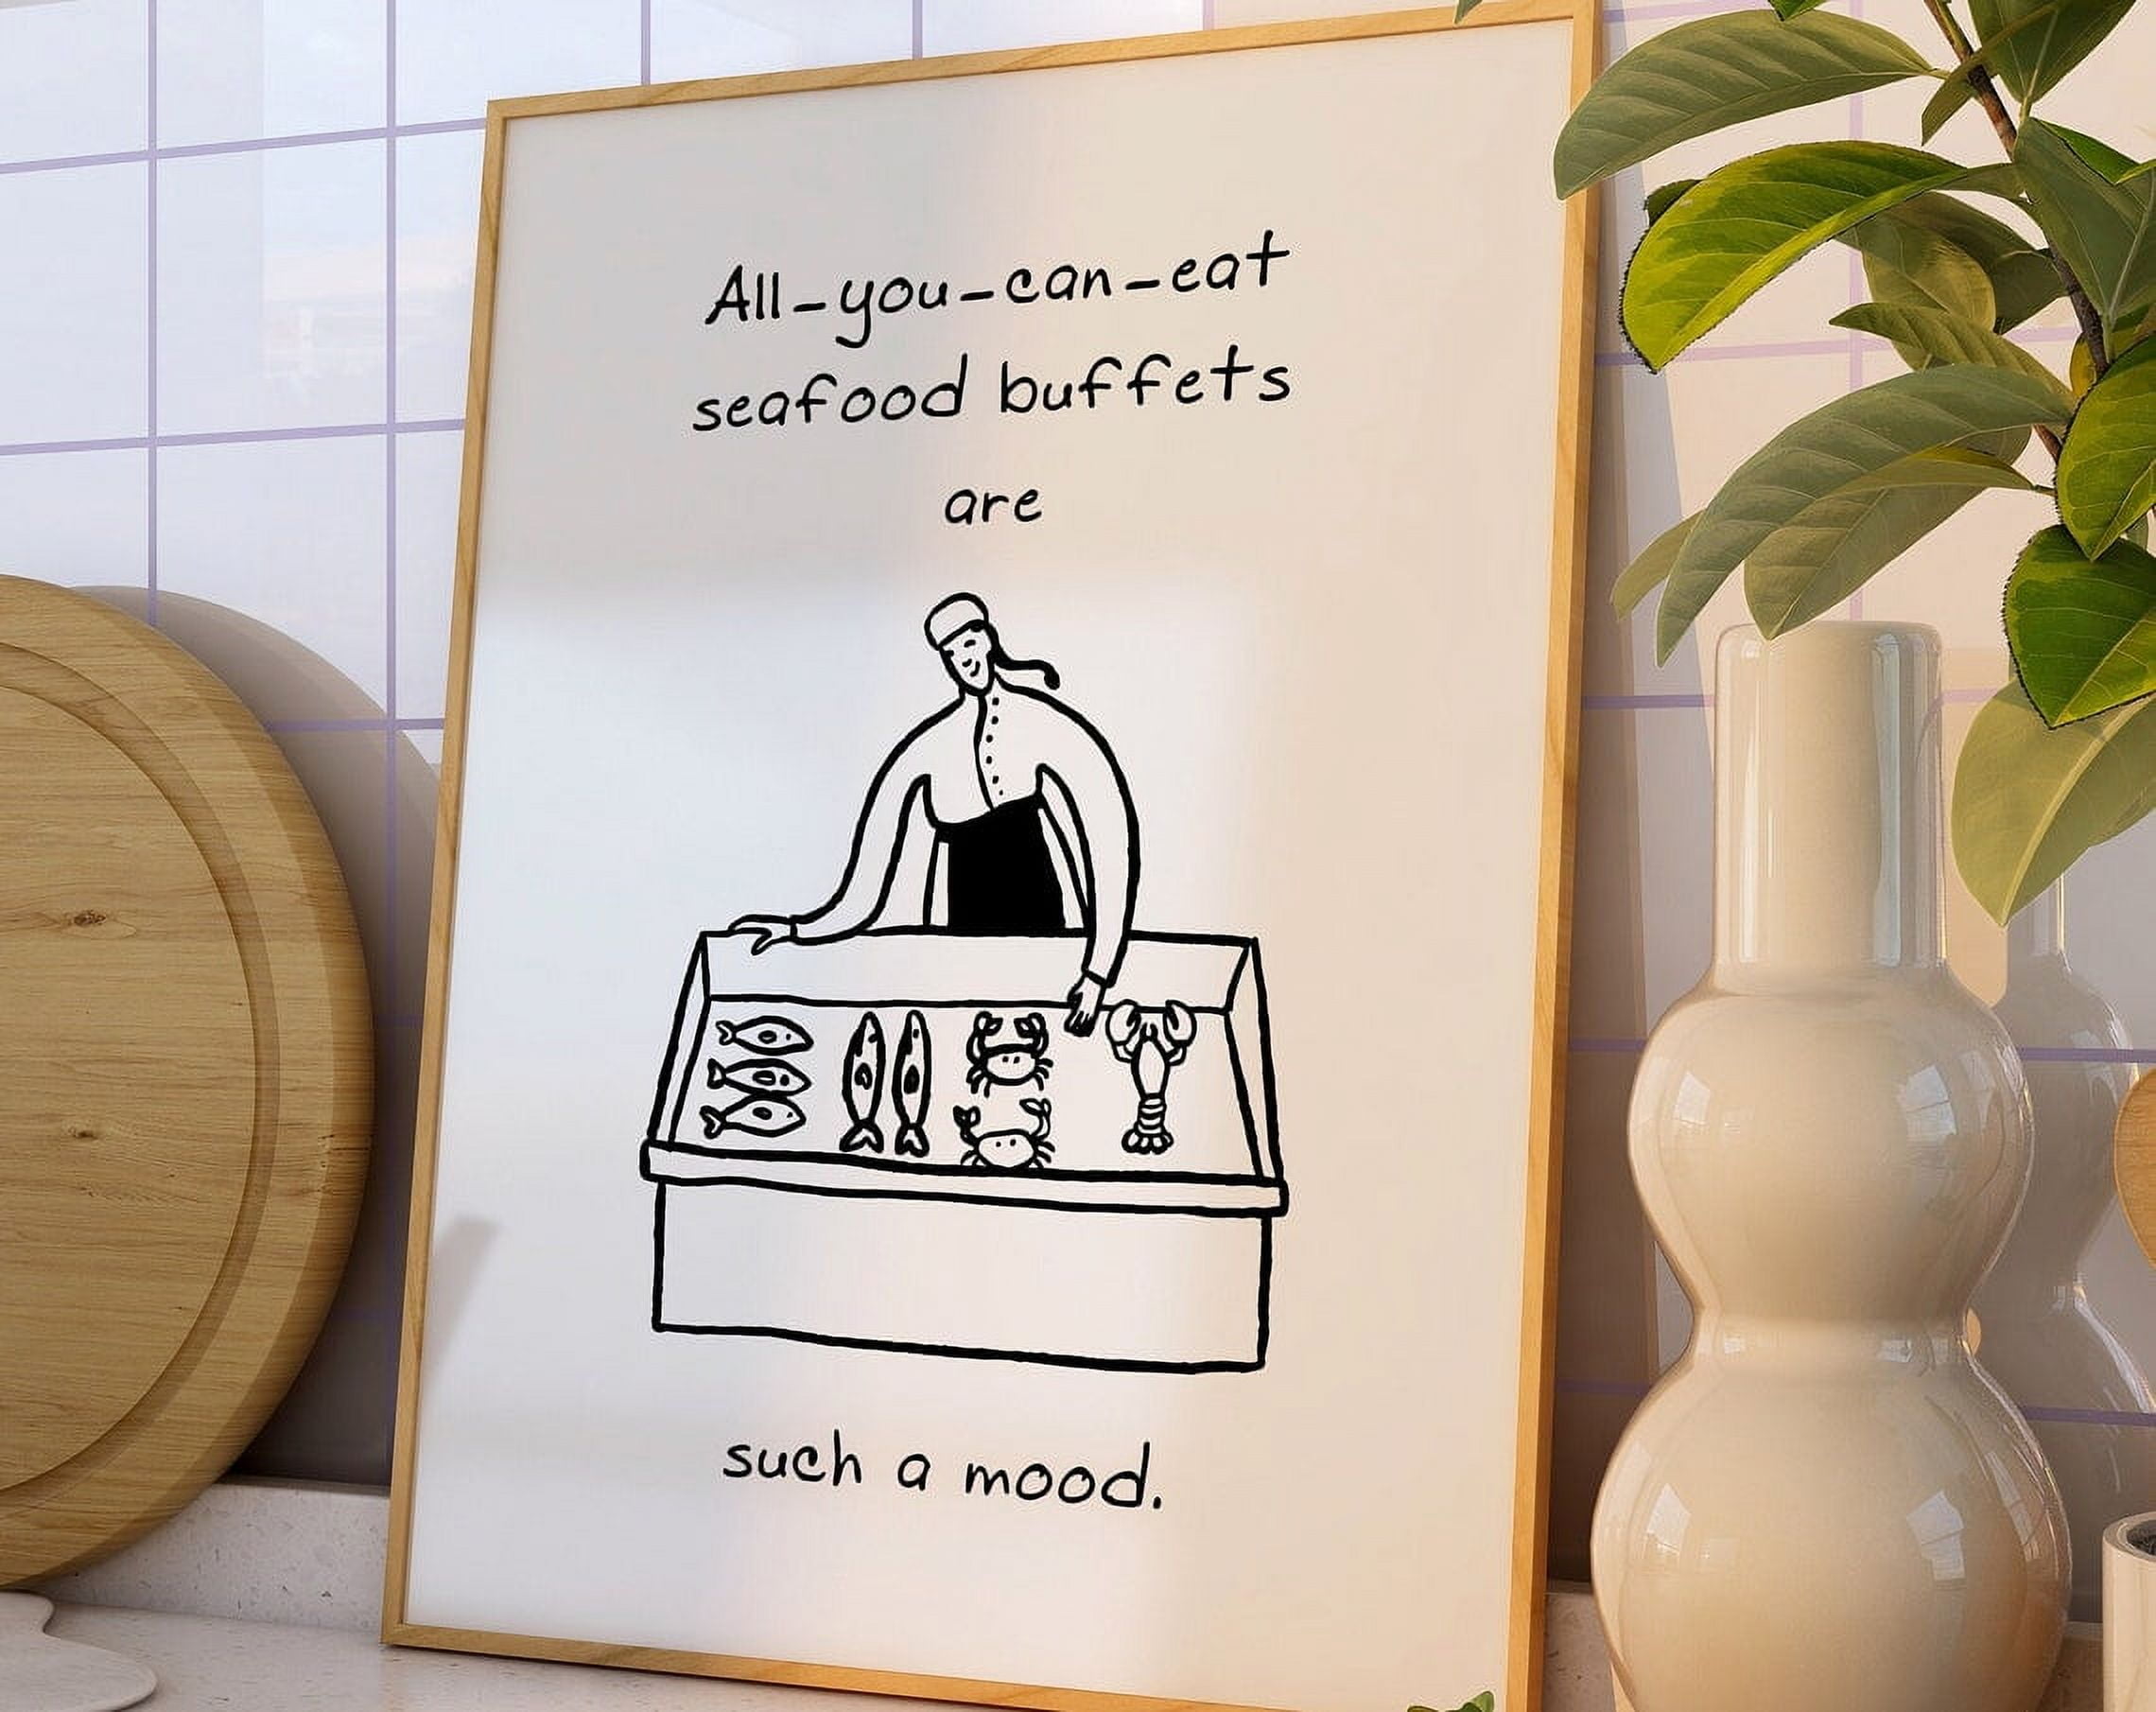 All-you-can-eat
seafood buffets
are
such a mood.